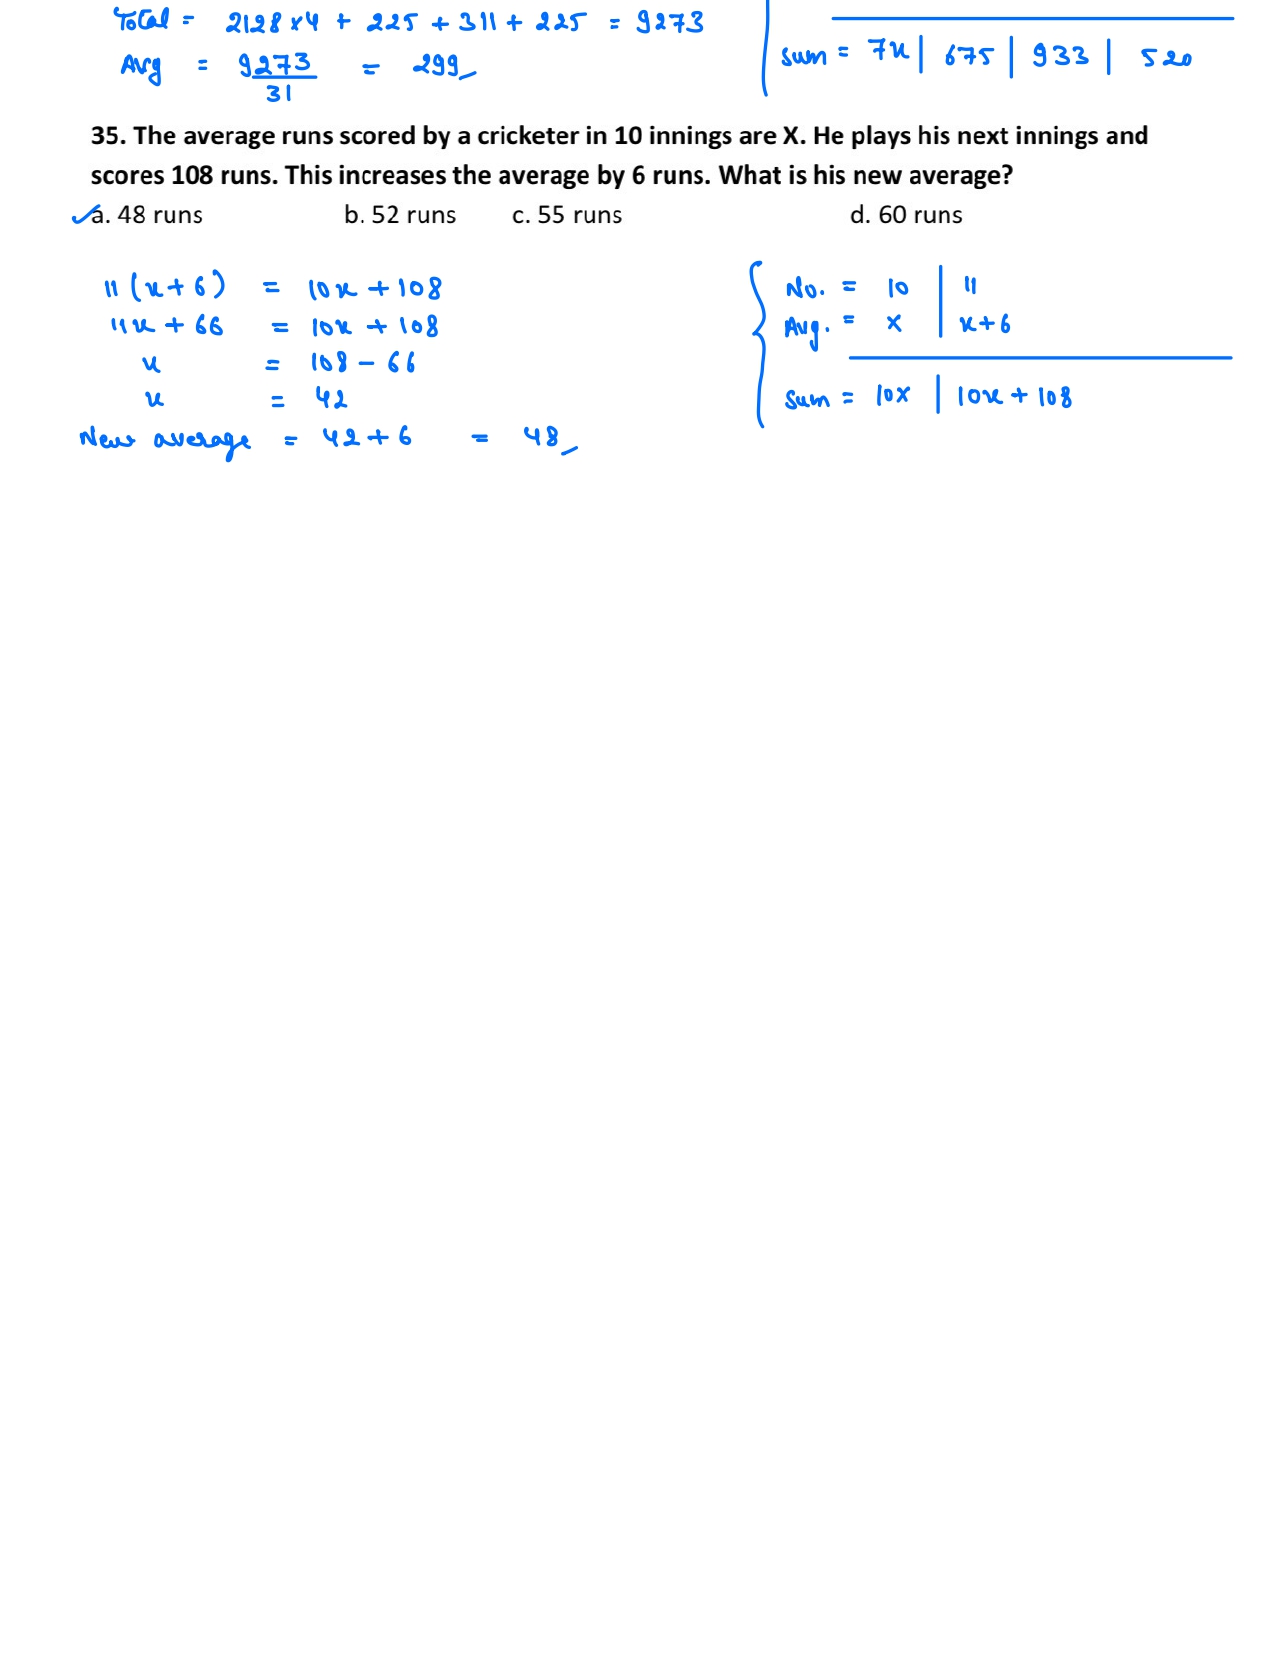 Total = 2128 x 4 + 225 + 311 + 225 = 9273
Avg = 9273/31 = 299
Sum = 7x | 675 | 933 | 520
35. The average runs scored by a cricketer in 10 innings are X. He plays his next innings and
scores 108 runs. This increases the average by 6 runs. What is his new average?
✓a. 48 runs b. 52 runs c. 55 runs d. 60 runs
11 (x + 6) = 10x + 108
11x + 66 = 10x + 108
x = 108 - 66
x = 42
New average = 42 + 6 = 48
No. = 10 | 11
Avg. = x | x+6
Sum = 10x | 10x + 108